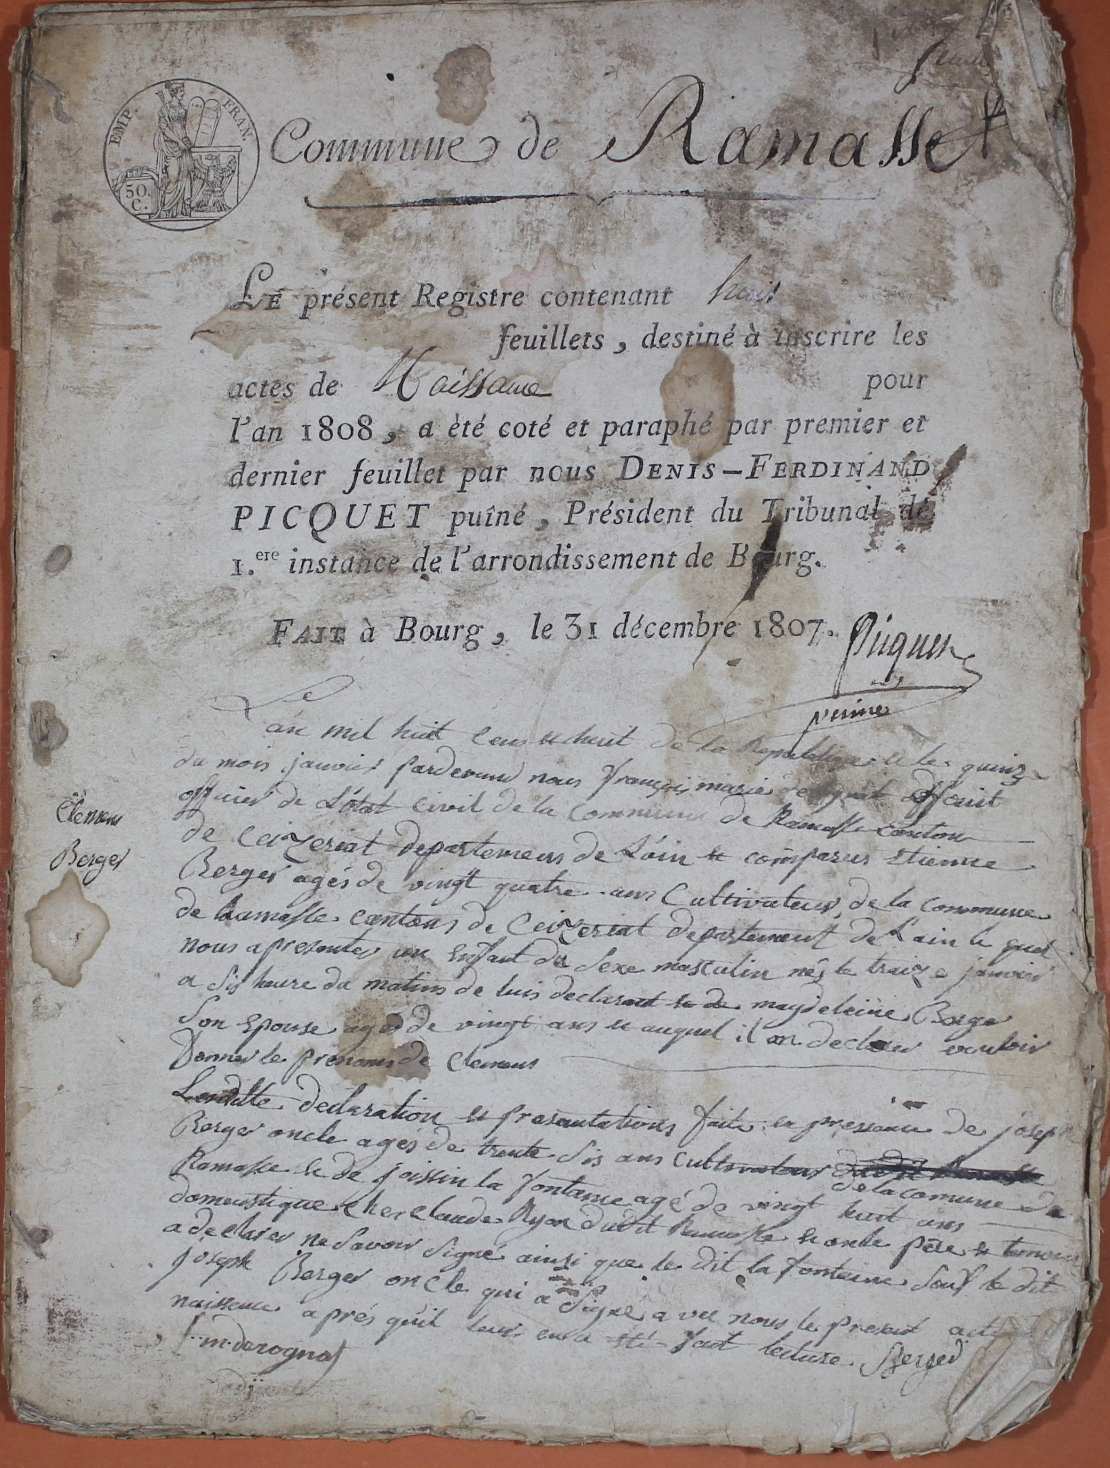 EMP. FRAN.
50. C.
Commune de Ramasse
LE présent Registre contenant huit
feuillets, destiné à inscrire les
actes de Naissance pour
l'an 1808, a été coté et paraphé par premier et
dernier feuillet par nous DENIS-FERDINAND
PICQUET puîné, Président du Tribunal de
1.ere instance de l'arrondissement de Bourg.
FAIT à Bourg, le 31 décembre 1807.
Picquet
puiné
L'an mil huit cens et huit de la Republique et le quinze
du mois janvier pardevant nous françois marie
officier de L'état civil de la Commune de Ramasse canton
de Ceizeriat departement de L'ain et comparus Etienne
Clemens
Berger
Berger agés de vingt quatre ans Cultivateur de la commune
de Ramasse cantons de Ceizeriat departement de L'ain le quel
nous a presentés un Enfant du Sexe masculin nés le traize janvier
a Sis heure du matins de luis declarant et de maydeleine Berger
Son Epouse agés de vingt ans et auquel il an declarer vouloir
Donner le prenoms de Clemens
declaration et presentations faite en pressence de joseph
Berger oncle ages de trente Sis ans Cultivateur de la comune de
Ramasse et de joissin la fontaine agé de vingt huit ans
domestique chez Claude dudit Ramasse et on le pére et temoin
a declarer ne Savoir Signé ainsi que le dit la fontaine Sauf le dit
joseph Berger oncle qui a Signe avec nous le present acte
naissence aprés qu'il leur en a été fait lecture. Berger
f. m. derognat